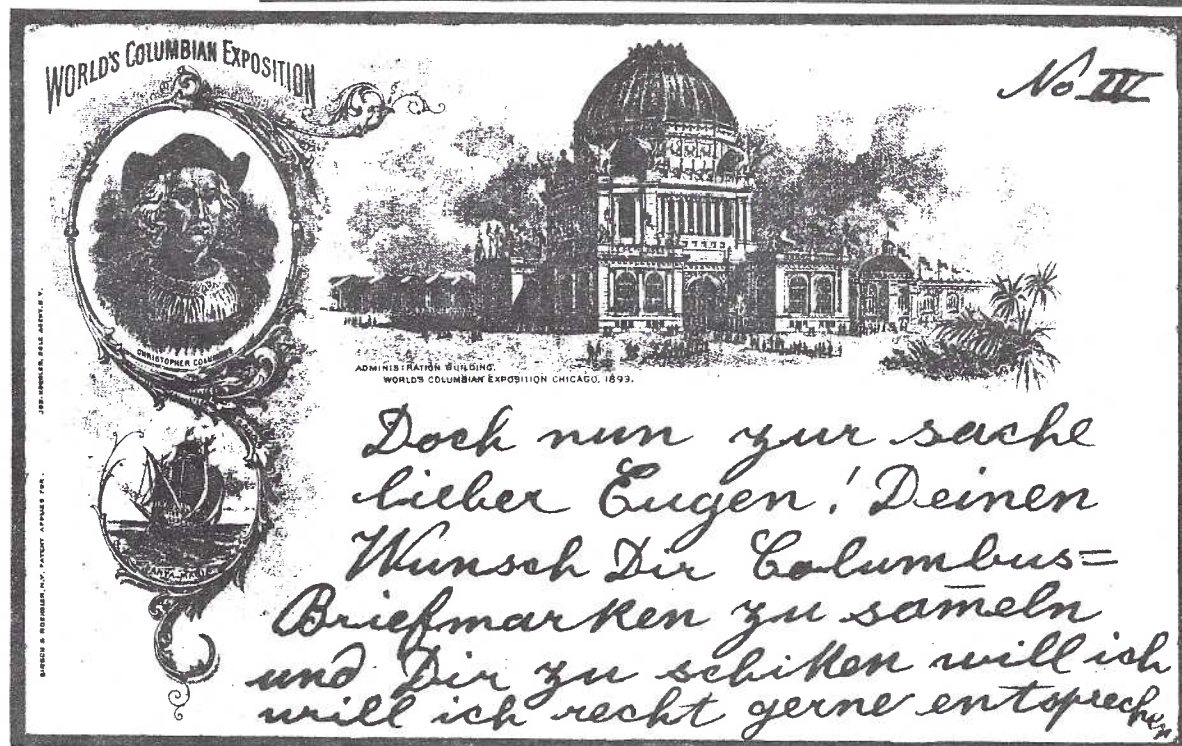 WORLD'S COLUMBIAN EXPOSITION
No III
CHRISTOPHER COLUMBUS
ADMINISTRATION BUILDING.
WORLD'S COLUMBIAN EXPOSITION CHICAGO, 1893.
JOS. KOEHLER, SOLE AGENT, N.Y.
GIRSCH & ROEHSLER, N.Y. PATENT APPLIED FOR.
SANTA MARIA
Doch nun zur sache
lieber Eugen! Deinen
Wunsch Dir Columbus=
Briefmarken zu sam̄eln
und Dir zu schiken will ich
will ich recht gerne entsprechen